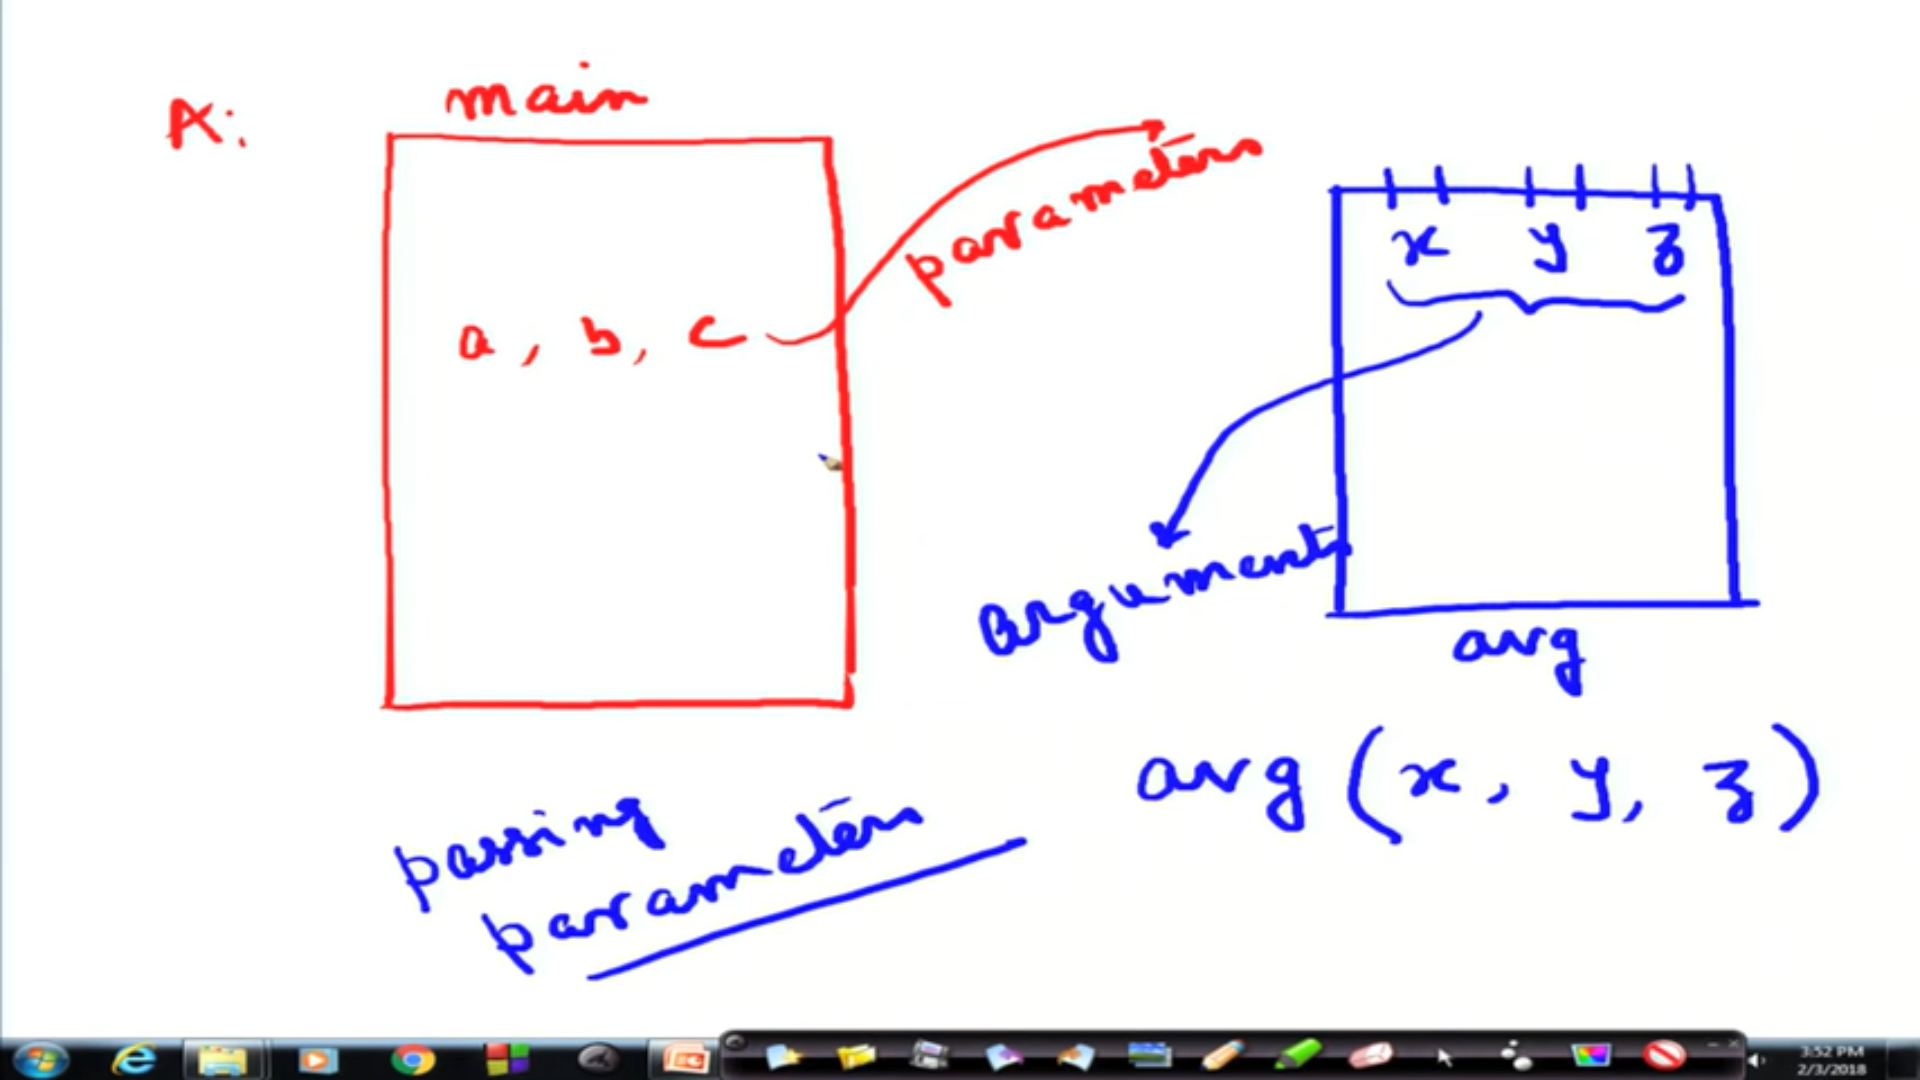 A:
main
parameters
a, b, c
x y z
arguments
avg
avg (x, y, z)
passing
parameters
3:52 PM
2/3/2018